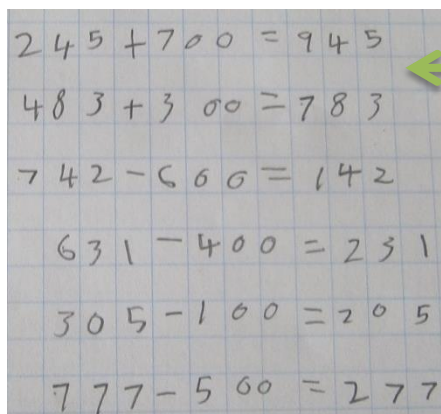 245+700=945
483+300=783
742-600=142
631-400=231
305-100=205
777-500=277